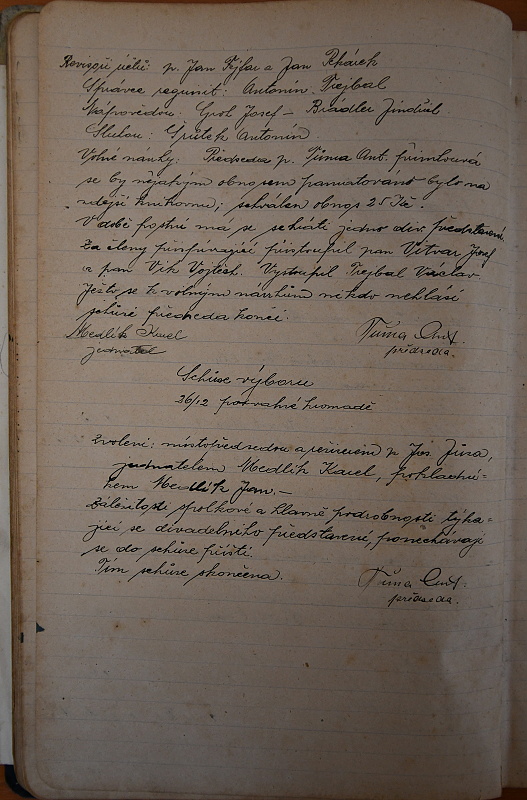 Revisoři účtů: p. Jan Fejfar a Jan Řehácek
Správce regunit: Antonín Trejbal
Nápovědou: Grof Josef – Brádler Jindřich
Sluhou: Grütek Antonín
Volné návrhy: Předseda p. Tůma Ant. přimlouvá
se by nějakým obnosem pamatováno bylo na
zdejší knihovnu; schválen obnos 25 Kč.
V době postní má se sehráti jedno div. představení.
Za členy přispívající přistoupil pan Vitvar Josef
a pan Vik Vojtěch. Vystoupil Trejbal Václav.
Ježto se k volným návrhům nikdo nehlásí
schůzi předseda končí.
Medlík Karel
jednatel
Tůma Ant.
předseda.
Schůze výboru
26/12 po valné hromadě
Zvoleni: místopředsedou a režisérem p. Jos. Jůza,
jednatelem Medlík Karel, pokladní-
kem Medlík Jan. –
Záležitosti spolkové a hlavně podrobnosti týka-
jící se divadelního představení, ponechávají
se do schůze příští.
Tím schůze skončena.
Tůma Ant.
předseda.